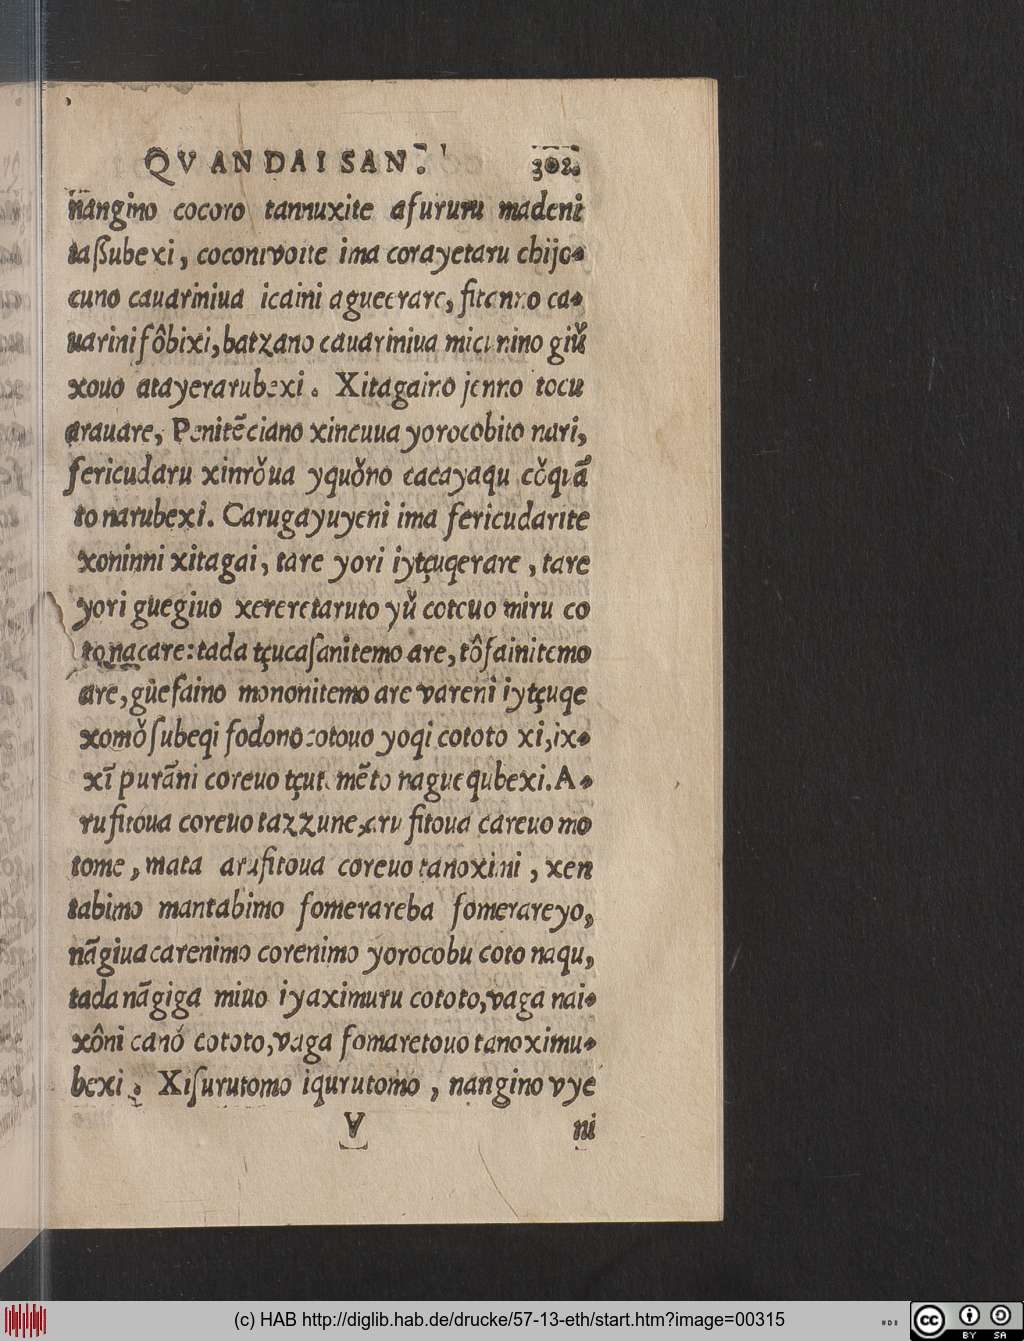 QVANDAI SAN. 302.
nangino cocoro tannuxite afururu madeni
taßubexi, coconivoite ima corayetaru chijo-
cuno cauariniua icaini agueerare, fitonno ca-
uarini fôbixi, batzano cauariniua micunino giŭ
xouo atayerarubexi. Xitagairo jenno tocu
arauare, Penitẽciano xincuua yorocobito nari,
fericudaru xinrǒua yquǒno cacayaqu cǒquã
to narubexi. Carugayuyeni ima fericudarite
xoninni xitagai, tare yori iytçuqerare, tare
yori guegiuo xereretaruto yŭ cotcuo miru co
to nacare: tada tçucasanitemo are, tôfainitemo
are, gŭefaino mononitemo are vareni iytçuqe
xomǒ subeqi fodono cotouo yoqi cototo xi, ix-
xĩ purãni coreuo tçutomẽto naguequbexi. A-
ru fitoua coreuo tazzune, aru fitoua careuo mo
tome, mata aru fitoua coreuo tanoximi, xen
tabimo mantabimo fomerareba fomerareyo,
nãgiua carenimo corenimo yorocobu coto naqu,
tada nãgiga miuo iyaximuru cototo, vaga nai-
xôni canó cototo, vaga fomaretouo tanoximu-
bexi. Xisurutomo iqurutomo, nangino vye
A ni
(c) HAB http://diglib.hab.de/drucke/57-13-eth/start.htm?image=00315
cc BY SA